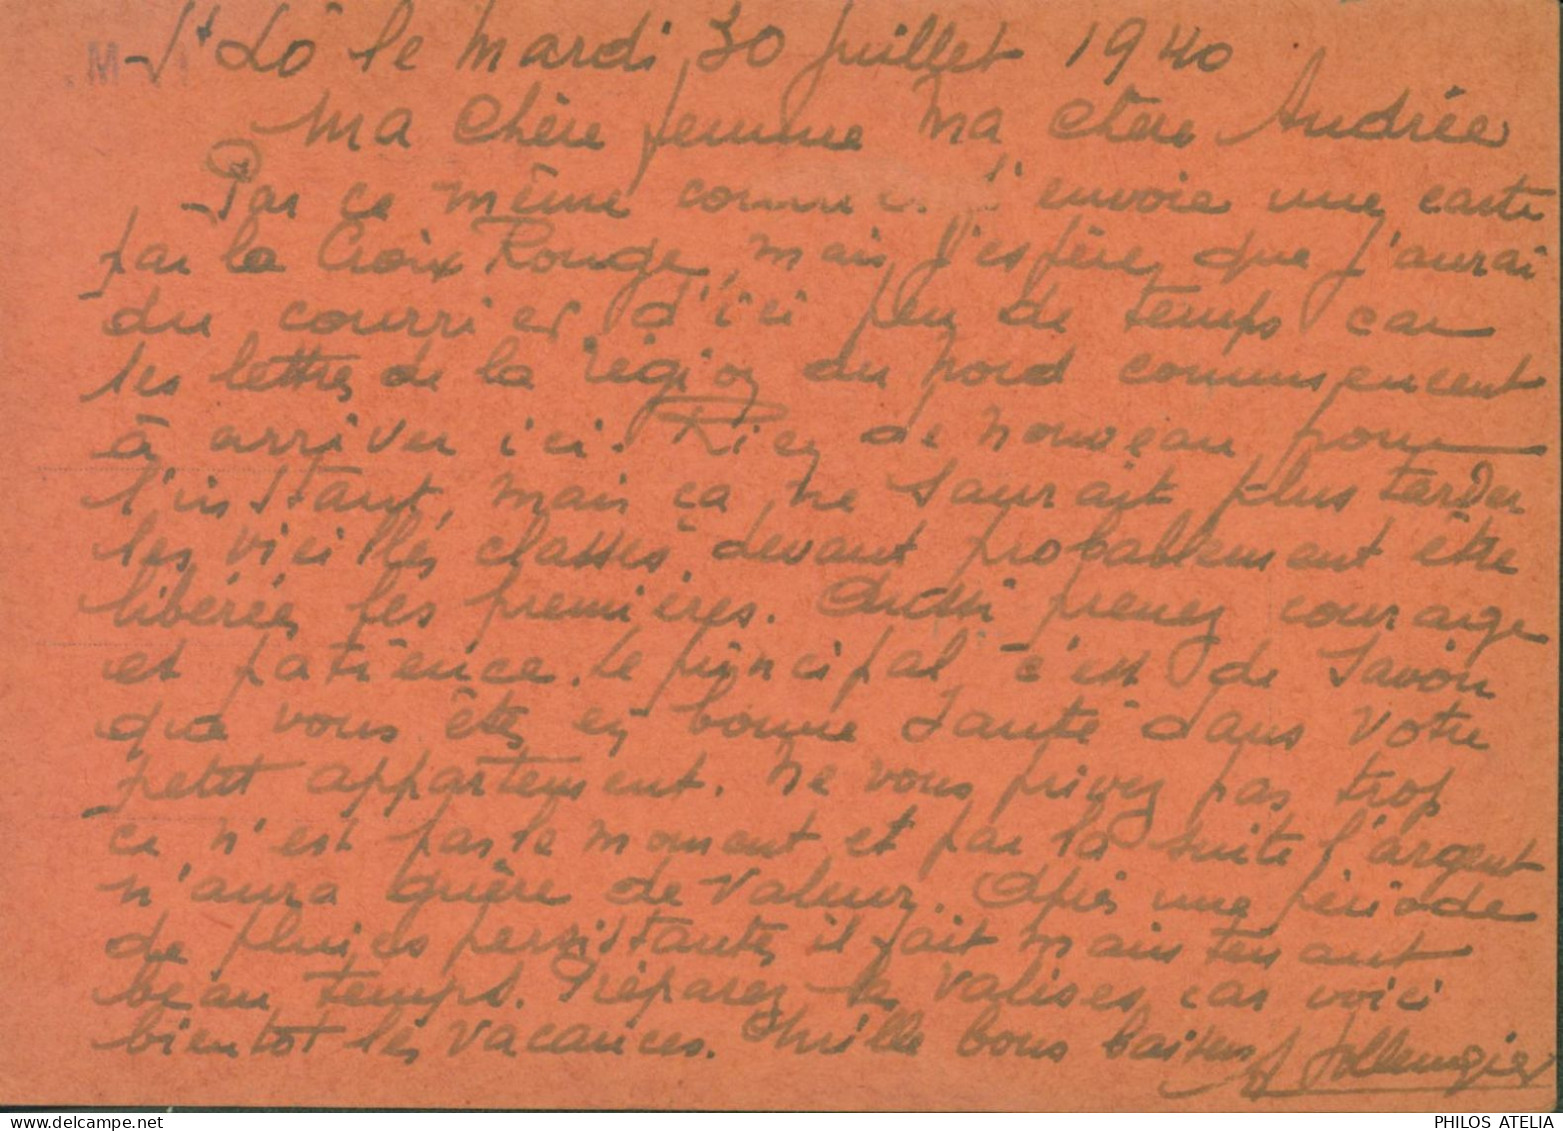 St Lô le Mardi 30 Juillet 1940
Ma chère femme Ma chère Andrée
Par ce même courrier j'envoie une carte
par la Croix Rouge, mais j'espère que j'aurai
du courrier d'ici peu de temps car
les lettres de la région du nord commencent
à arriver ici. Rien de nouveau pour
l'instant, mais ça ne saurait plus tarder
les vieilles classes devant probablement être
libérées les premières. Aussi prenez courage
et patience. Le principal c'est de savoir
que vous êtes en bonne santé dans votre
petit appartement. Ne vous privez pas trop
ce n'est pas le moment et par la suite l'argent
n'aura guère de valeur. Après une période
de pluies persistantes il fait maintenant
beau temps. Préparez les valises car voici
bientot les vacances. Mille bons baisers
PHILOS ATELIA